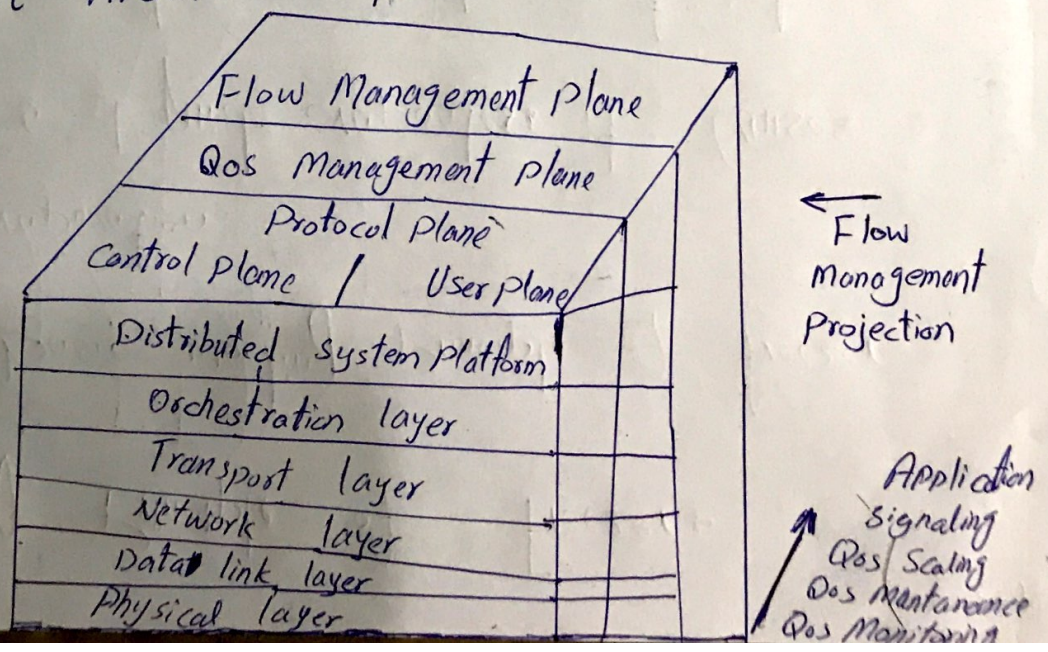 Flow Management Plane
Qos Management Plane
Protocol Plane
Control Plame / User Plane
Distributed System Platform
Orchestration layer
Transport layer
Network layer
Data link layer
Physical layer
Flow
Management
Projection
Application
Signaling
Qos Scaling
Qos Mantanance
Qos Monitoring